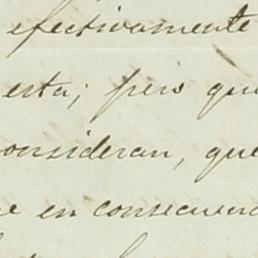 efectivamente
esta; pero que
consideran, que
e en consecuenc